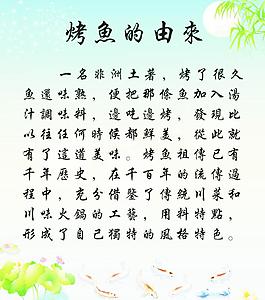 烤魚的由來
一名非洲土著，烤了很久
魚還味熟，便把那條魚加入湯
汁調味料，邊吃邊烤，發現比
以往任何時候都鮮美，從此就
有了這道美味。烤魚祖傳已有
千年歷史，在千百年的流傳過
程中，充分借鑒了傳統川菜和
川味火鍋的工藝，用料特點，
形成了自己獨特的風格特色。